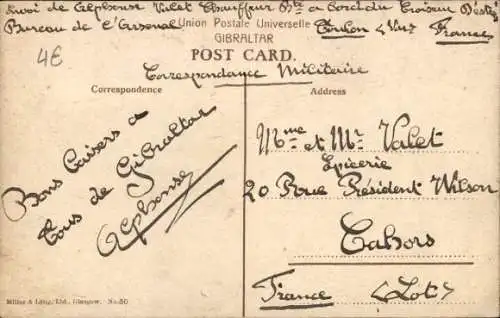 Envoi de Alphonse Valet Chauffeur Bté a bord du Croiseur
Bureau de l'Arsenal
Union Postale Universelle
Toulon (Var) France
GIBRALTAR
4€
POST CARD.
Correspondance Militaire
Correspondence
Address
Bons Baisers a
Tous de Gibraltar
Alphonse
Mme et Mr Valet
Epicerie
20 Rue Président Wilson
Cahors
France (Lot)
Millar & Lang, Ltd., Glasgow. No. 50